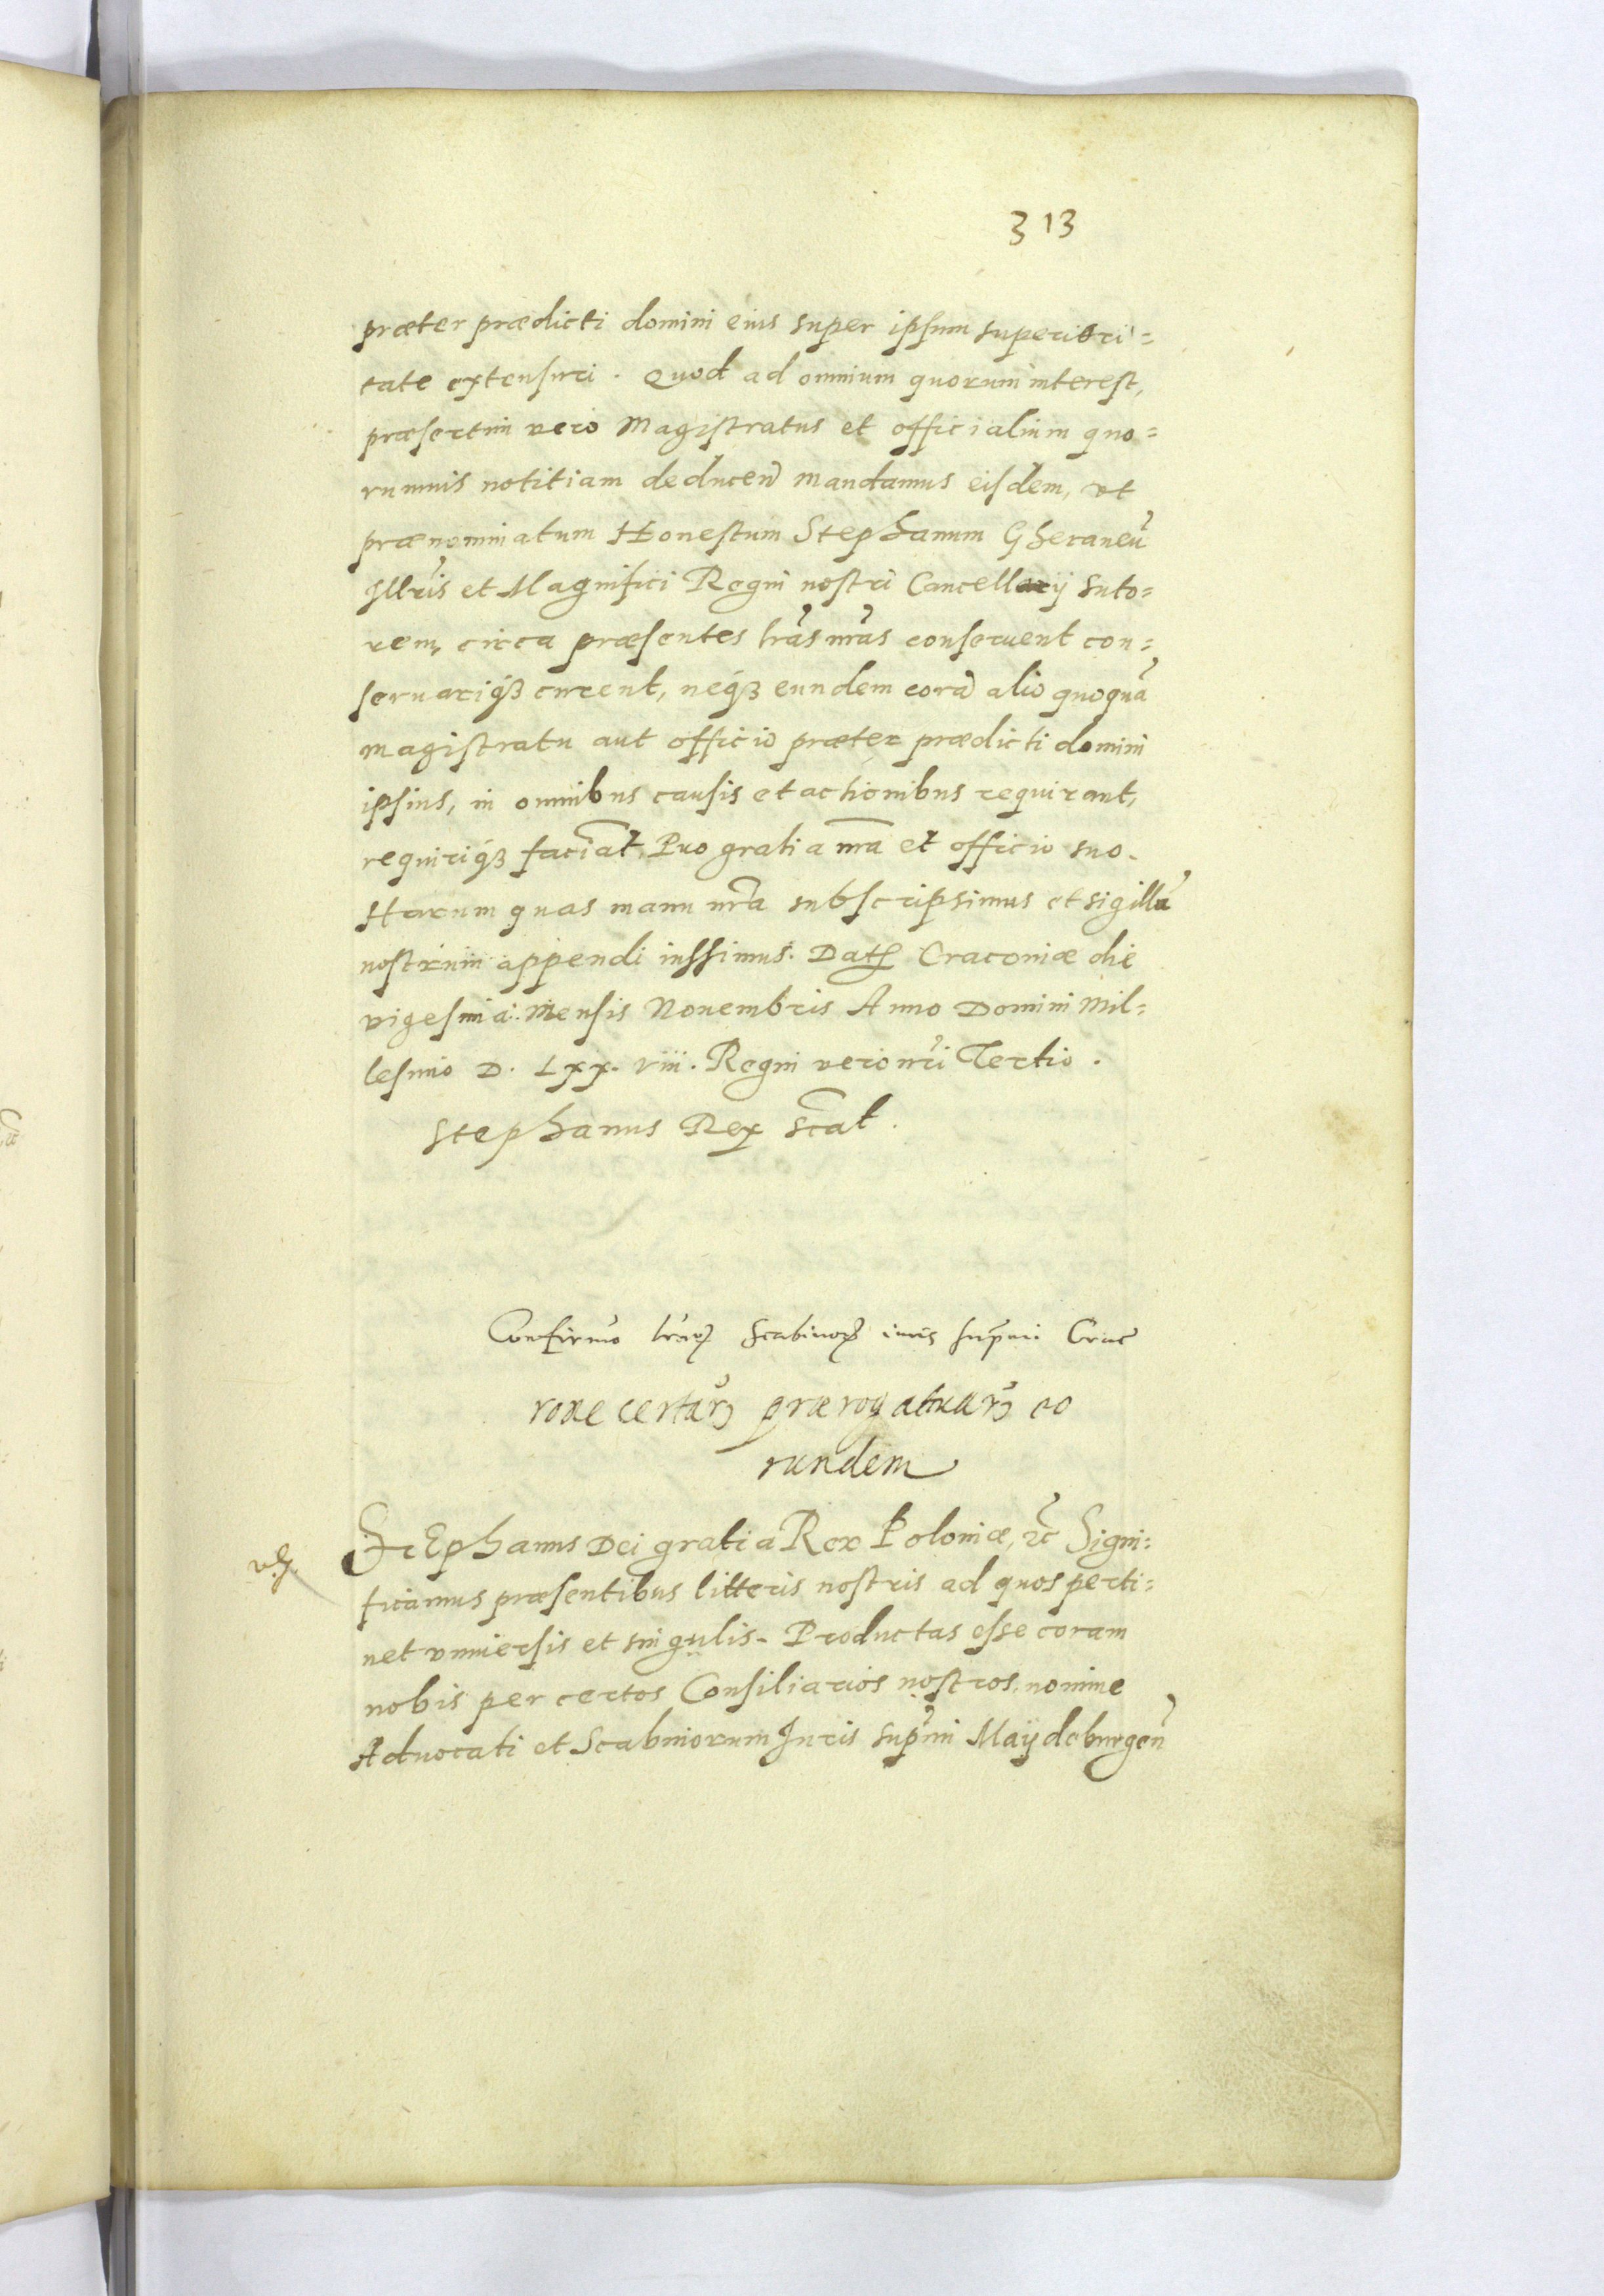 313
præter prædicti domini eius super ipsum superiori=
tate extensuri. Quod ad omnium quorum interest,
præsertim vero Magistratus et officialium quo=
rumuis notitiam deducen̄ mandamus eisdem, vt
prænominatum Honestum Stephanum Gheraneū
Illris et Magnifici Regni nostri Cancellarij suto=
rem, circa præsentes lrās nrās conseruent con=
seruariq₃ curent, neq₃ eundem corā alio quoquā
magistratu aut officio præter prædicti domini
ipsius, in omnibus causis et actionibus requirant,
requiriq₃ faciāt, Pro gratia nrā et officio suo.
Harum quas manu nrā subscripsimus et sigillū
nostrum appendi iussimus. Datꝭ Cracouiæ die
vigesima mensis Nouembris Anno Domini Mil=
lesimo D. Lxx. viii. Regni vero nri Tertio.
Stephanus Rex scāt.
Confirmo lrarꝝ Scabinorꝝ iuris supmi Crac
rone certarꝝ prærogatiuarꝝ eo
rundem
Stephanus Dei gratia Rex Poloniæ, ꝛc̄ Signi=
ficamus præsentibus litteris nostris ad quos perti=
net vniuersis et singulis. Productas esse coram
nobis per certos Consiliarios nostros, nomine
Aduocati et Scabinorum Iuris supmi Maydeburgen̄